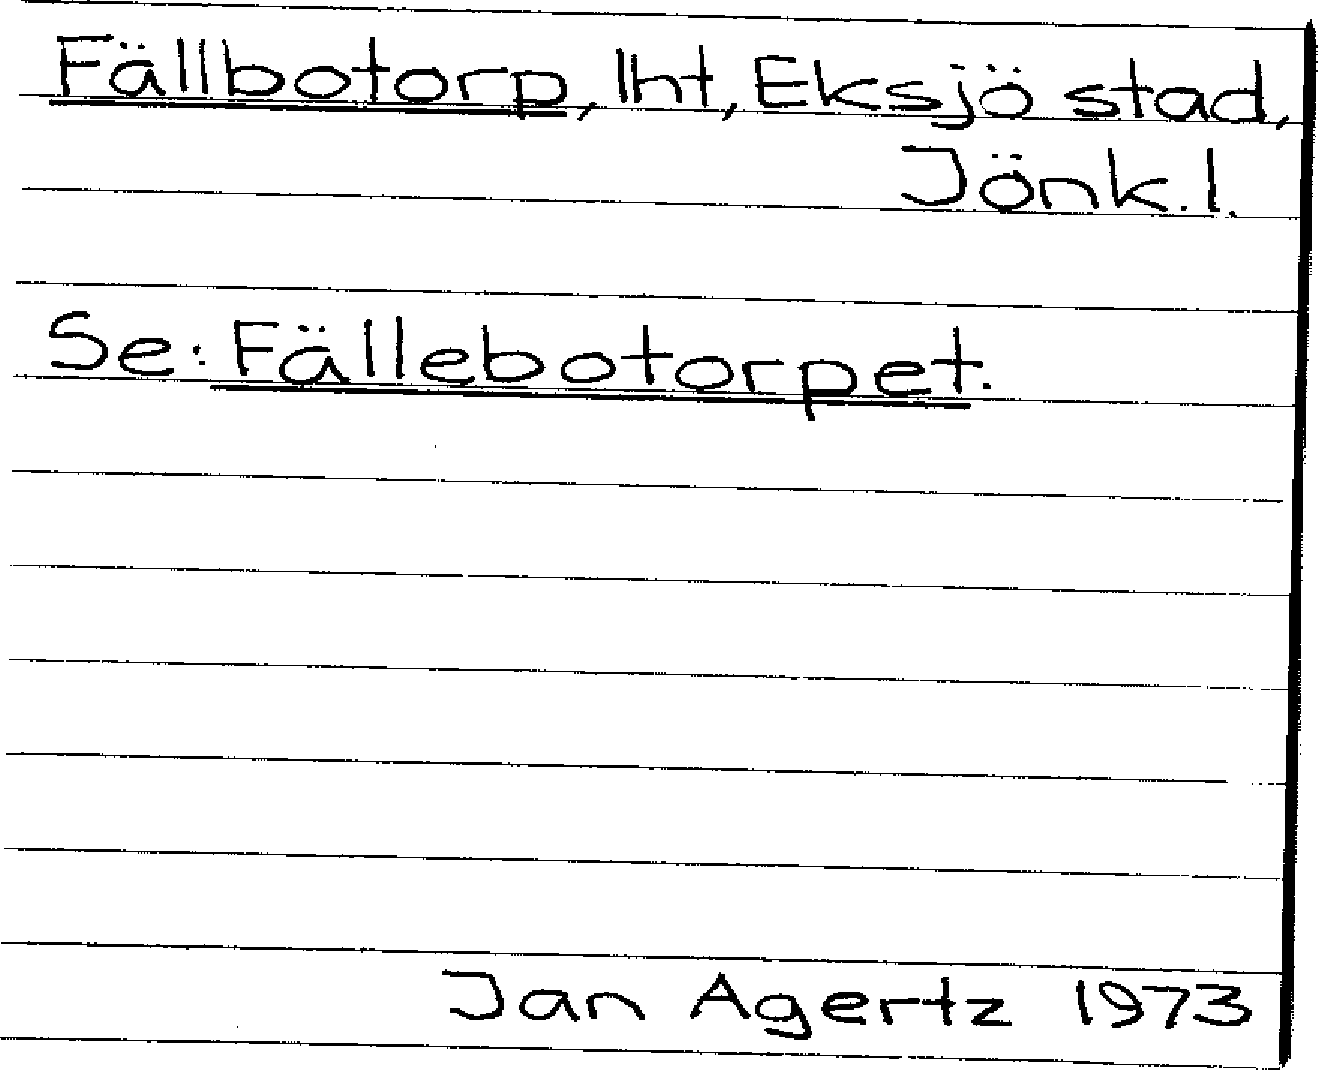 Fällbotorp, lht, Eksjö stad,
Jönk. l.
Se: Fällebotorpet.
Jan Agertz 1973